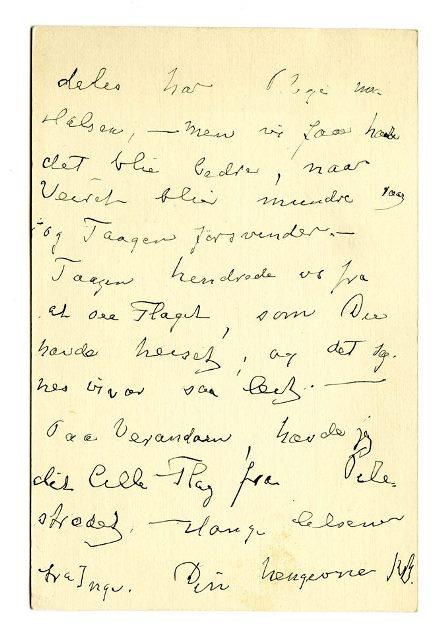 deles har
Halsen, – men vi faa
det blir bedre, naar
Veiret blir mindre
og Taagen forsvinder. –
Taagen hendrede os fra
at see Flaget, som Du
havde heiset, og det
nes vi var saa leit. –
Paa Verandaen, havde jeg
det lille Flag fra Pile-
strædet. – Mange hilsener
fra Inga. Din hengivne